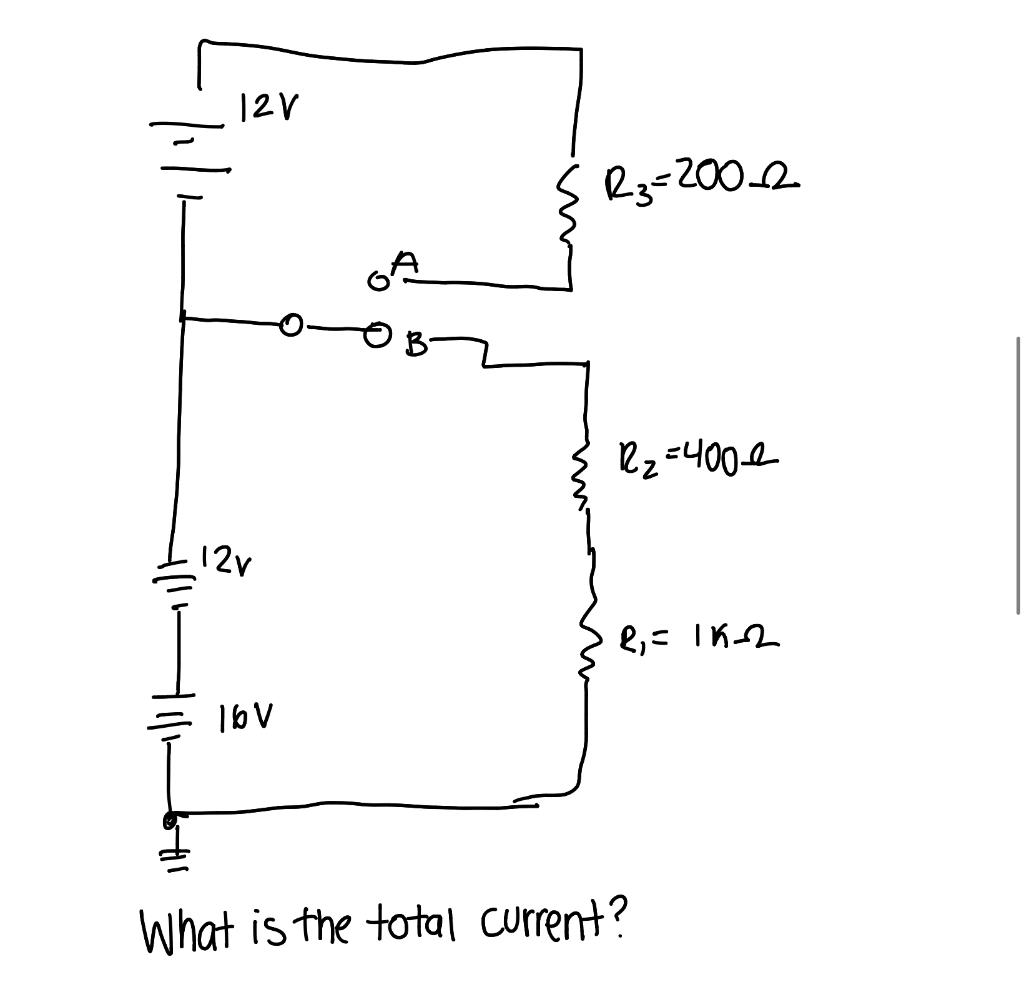 12V
R₃=200Ω
A
B
R₂=400Ω
12v
R₁= 1KΩ
16V
What is the total current?